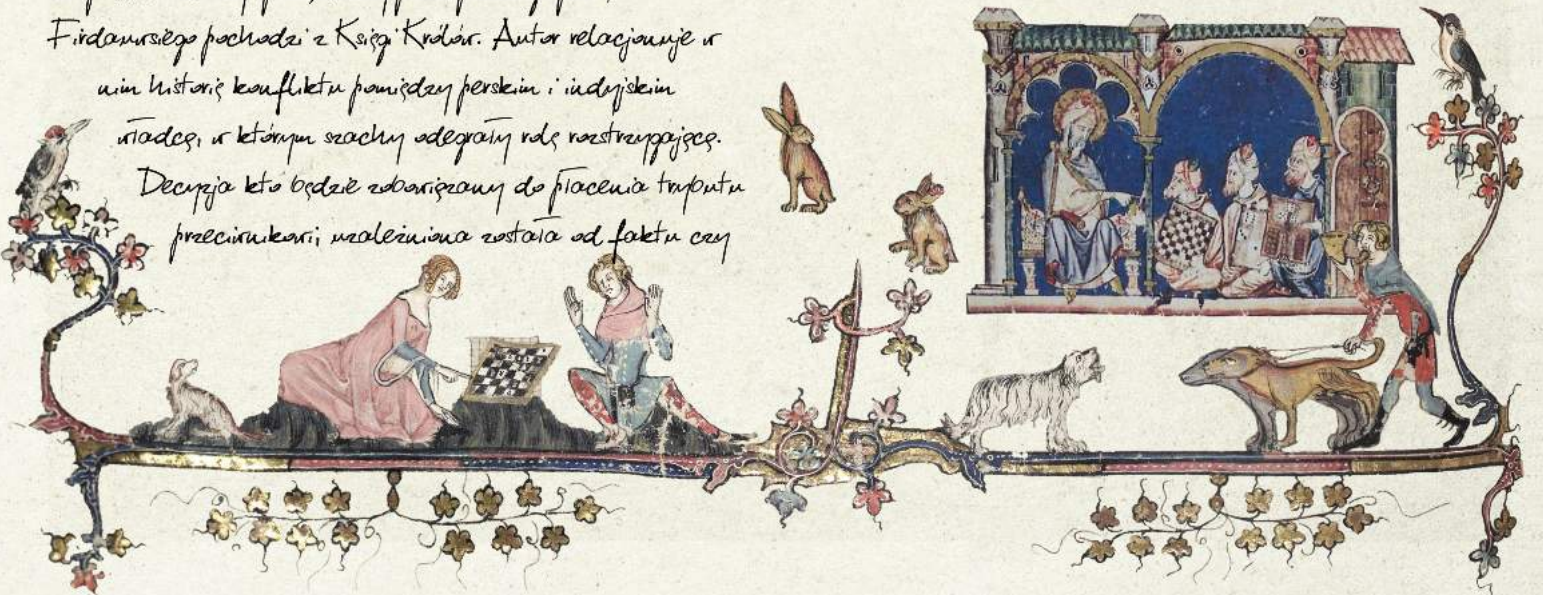 Firdawsiego pochodzi z Księgi Królów. Autor relacjonuje w
nim historię konfliktu pomiędzy perskim i indyjskim
władcą, w którym szachy odegrały rolę rozstrzygającą.
Decyzja kto będzie zobowiązany do płacenia trybutu
przeciwnikowi, uzależniona została od faktu czy